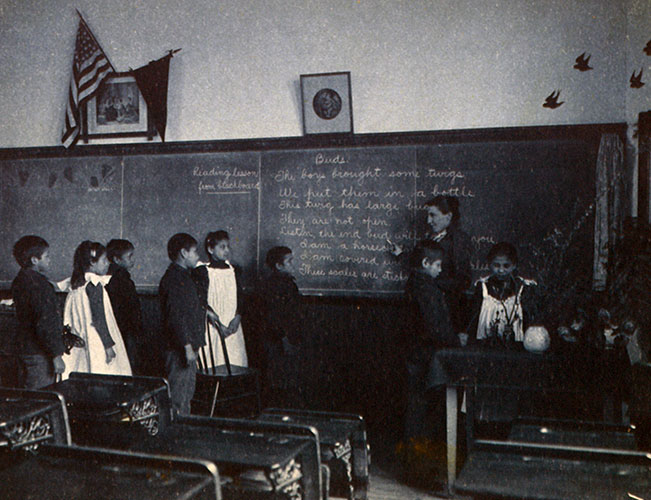 Reading lesson
from blackboard
Buds.
The boys brought some twigs
We put them in a bottle
This twig has large buds
They are not open
Listen, the end bud will you
I am a horse
I am covered
These scales are sticky